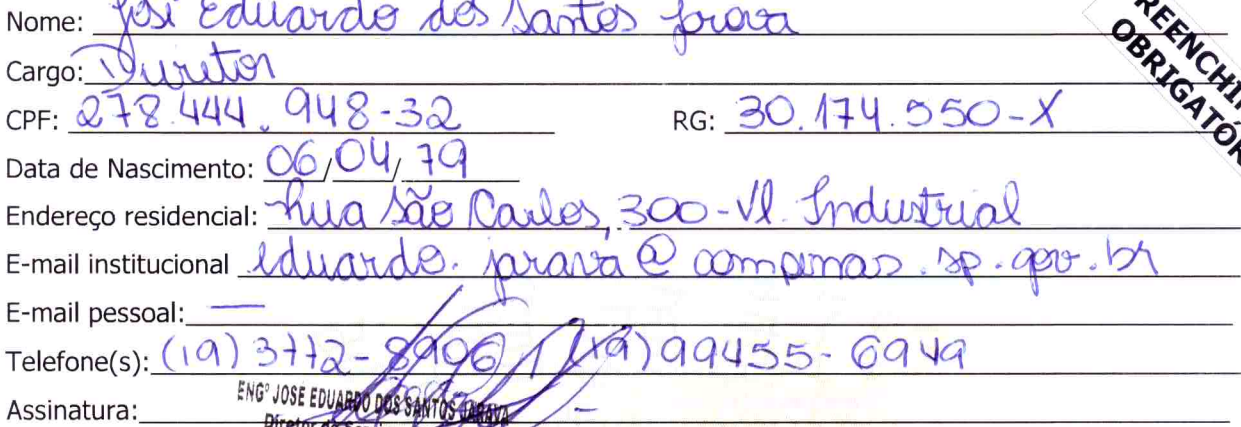 Nome: José Eduardo dos Santos Jarava
Cargo: Diretor
CPF: 278.444.948-32 RG: 30.174.550-X
Data de Nascimento: 06/04/79
Endereço residencial: Rua São Carlos, 300-Vl. Industrial
E-mail institucional eduardo.jarava@campinas.sp.gov.br
E-mail pessoal: —
Telefone(s): (19) 3772-8906 / (19) 99455-6949
Assinatura:
ENGº JOSE EDUARDO DOS SANTOS JARAVA
Diretor de